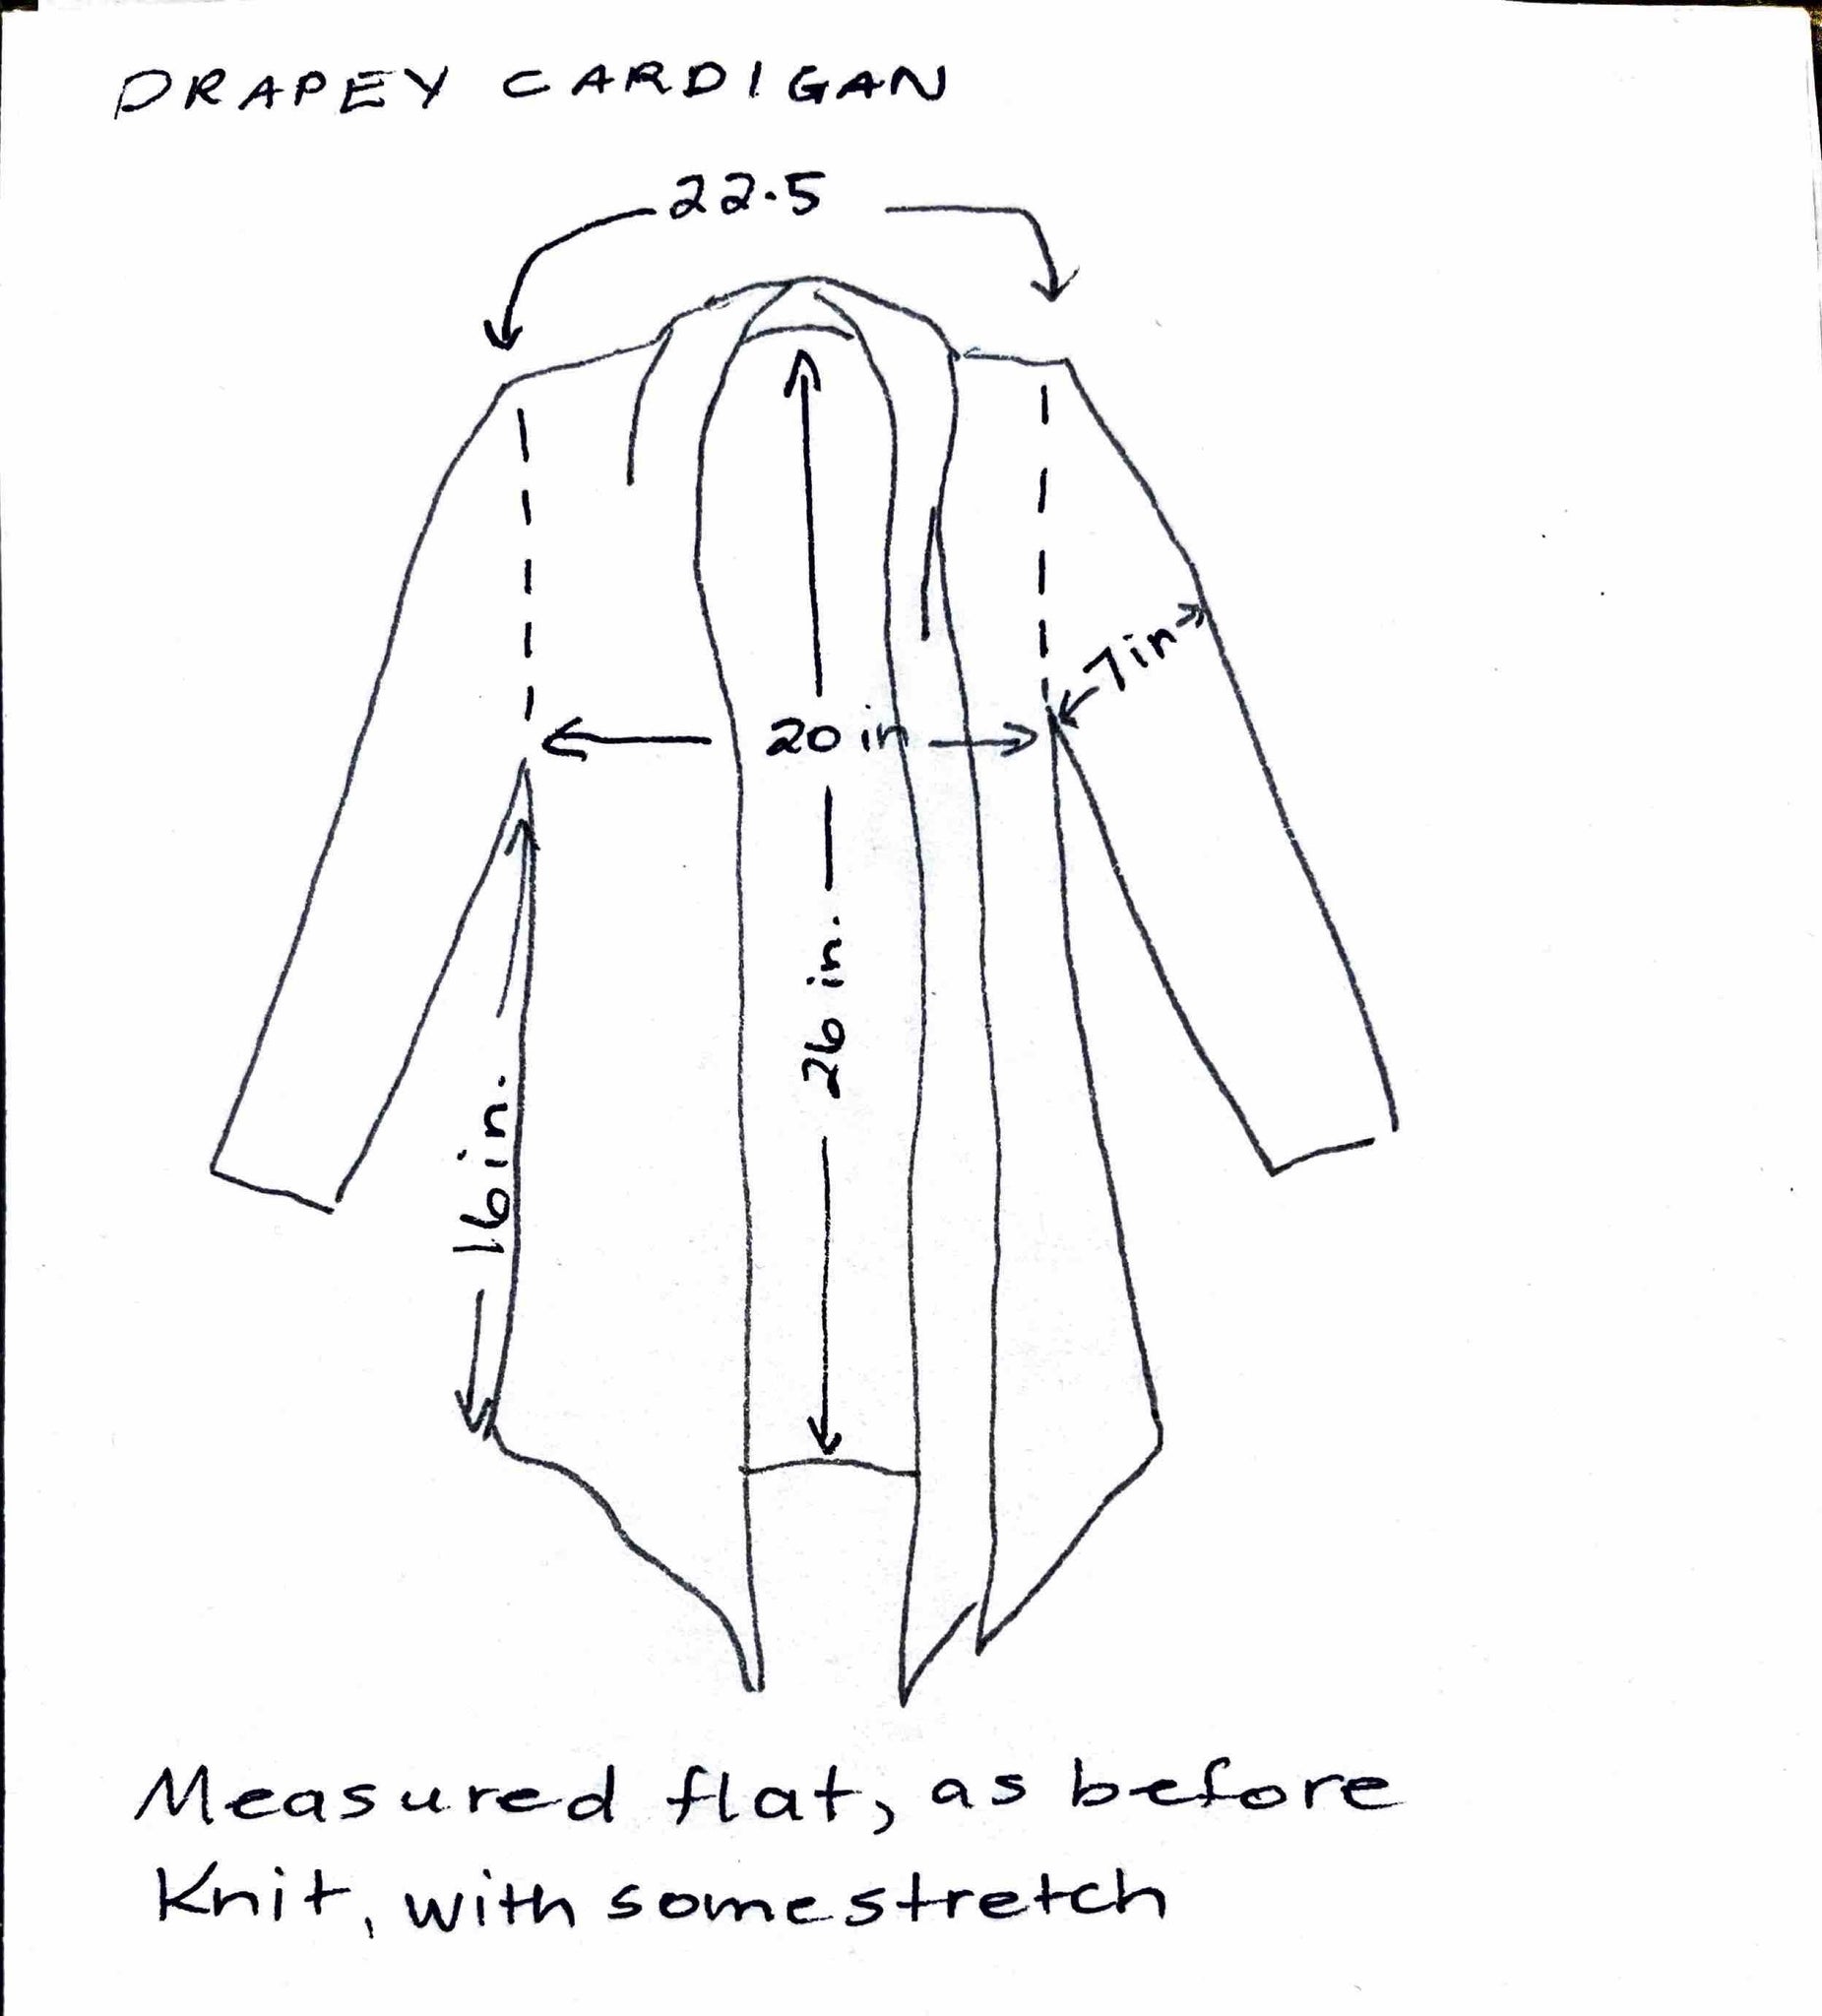 DRAPEY CARDIGAN
22.5
7in
20 in
26 in.
16 in.
Measured flat, as before
Knit, with some stretch